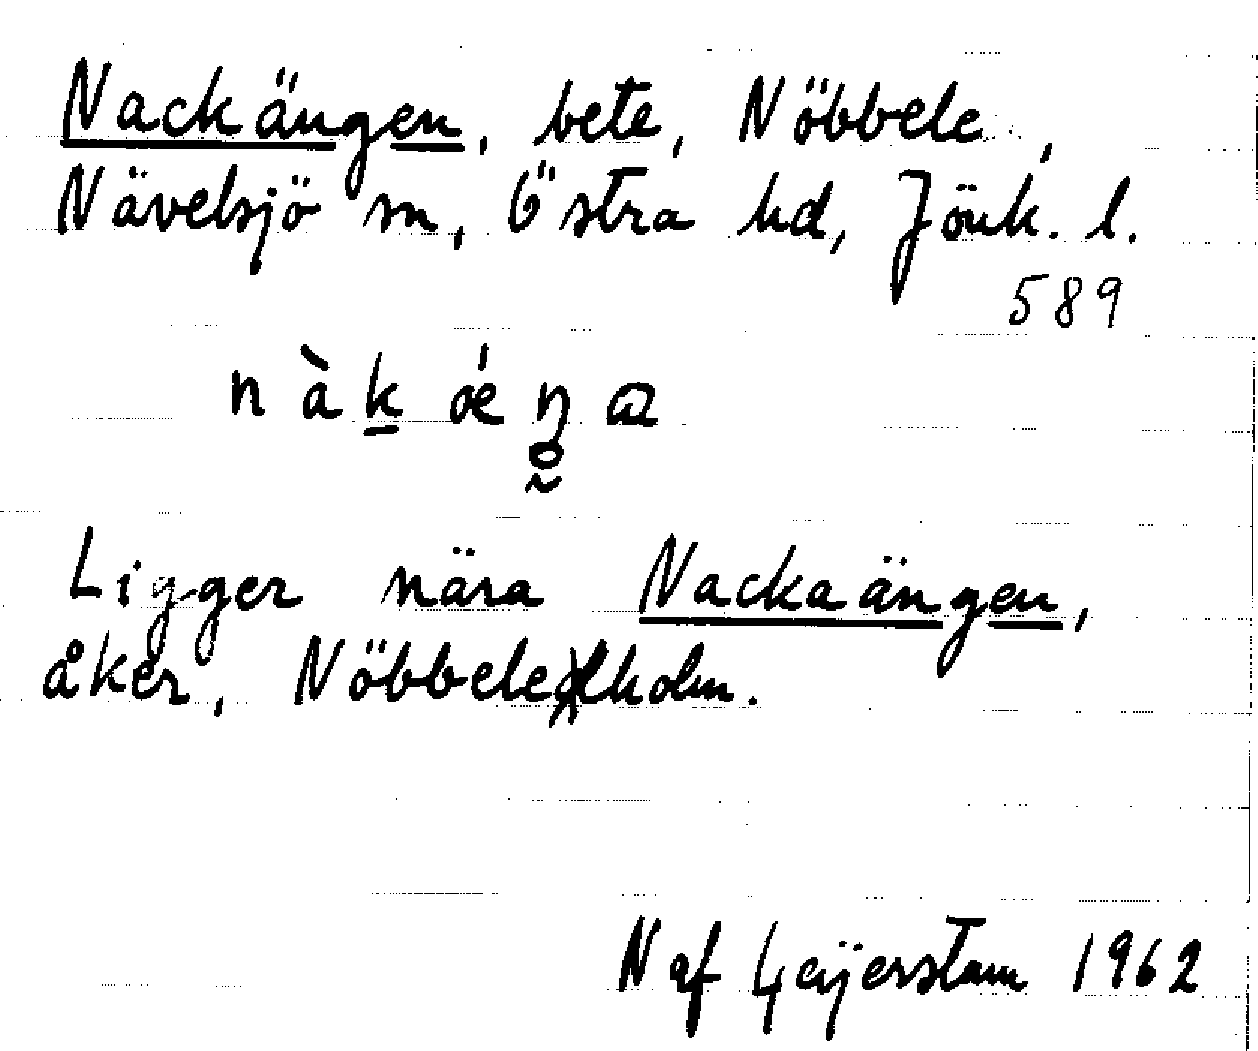 Nackängen, bete, Nöbbele,
Nävelsjö sn, Östra hd, Jönk. l.
589
nàkǽŋa
Ligger nära Nackaängen,
åker, Nöbbele holm.
N af Geijerstam 1962